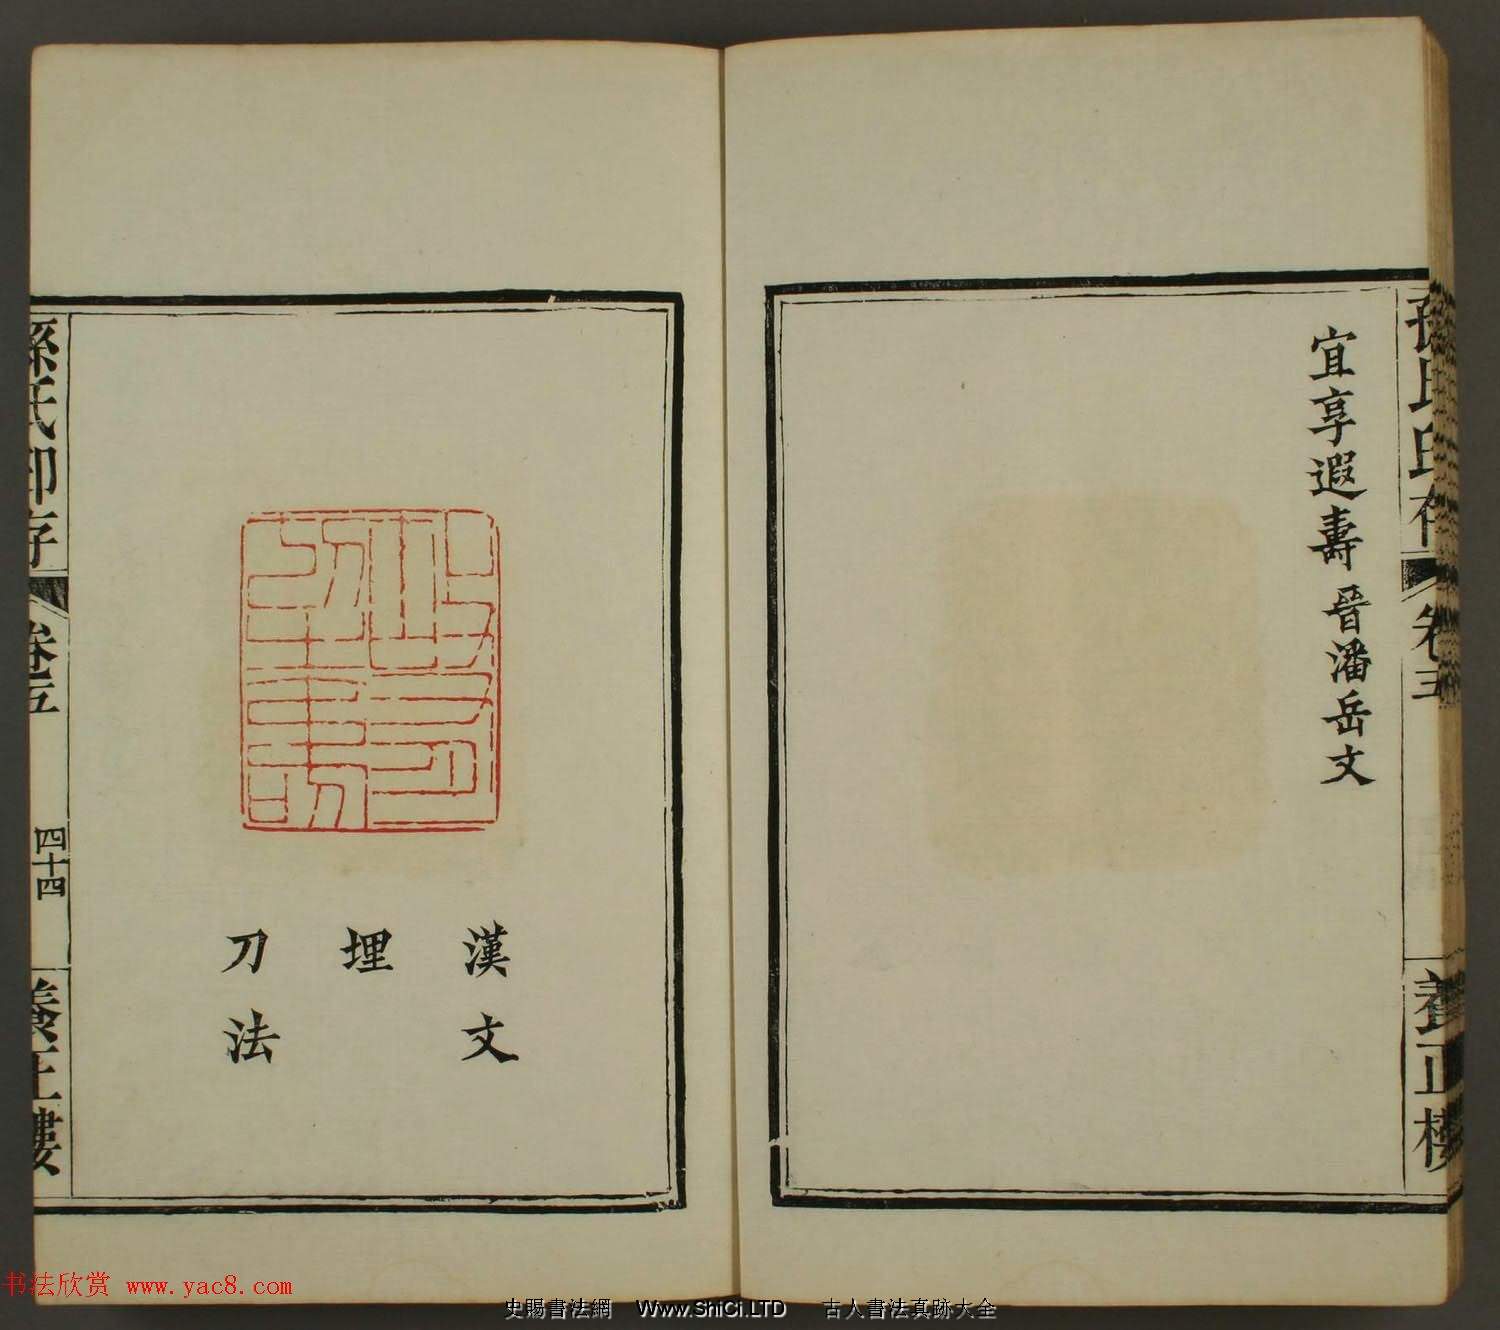 孫氏印存
卷五
養正樓
宜享遐壽 晉潘岳文
漢文
埋
刀法
孫氏印存
卷五
四十四
養正樓
书法欣赏 www.yac8.com
史賜書法網 Www.ShiCi.LTD 古人書法真跡大全